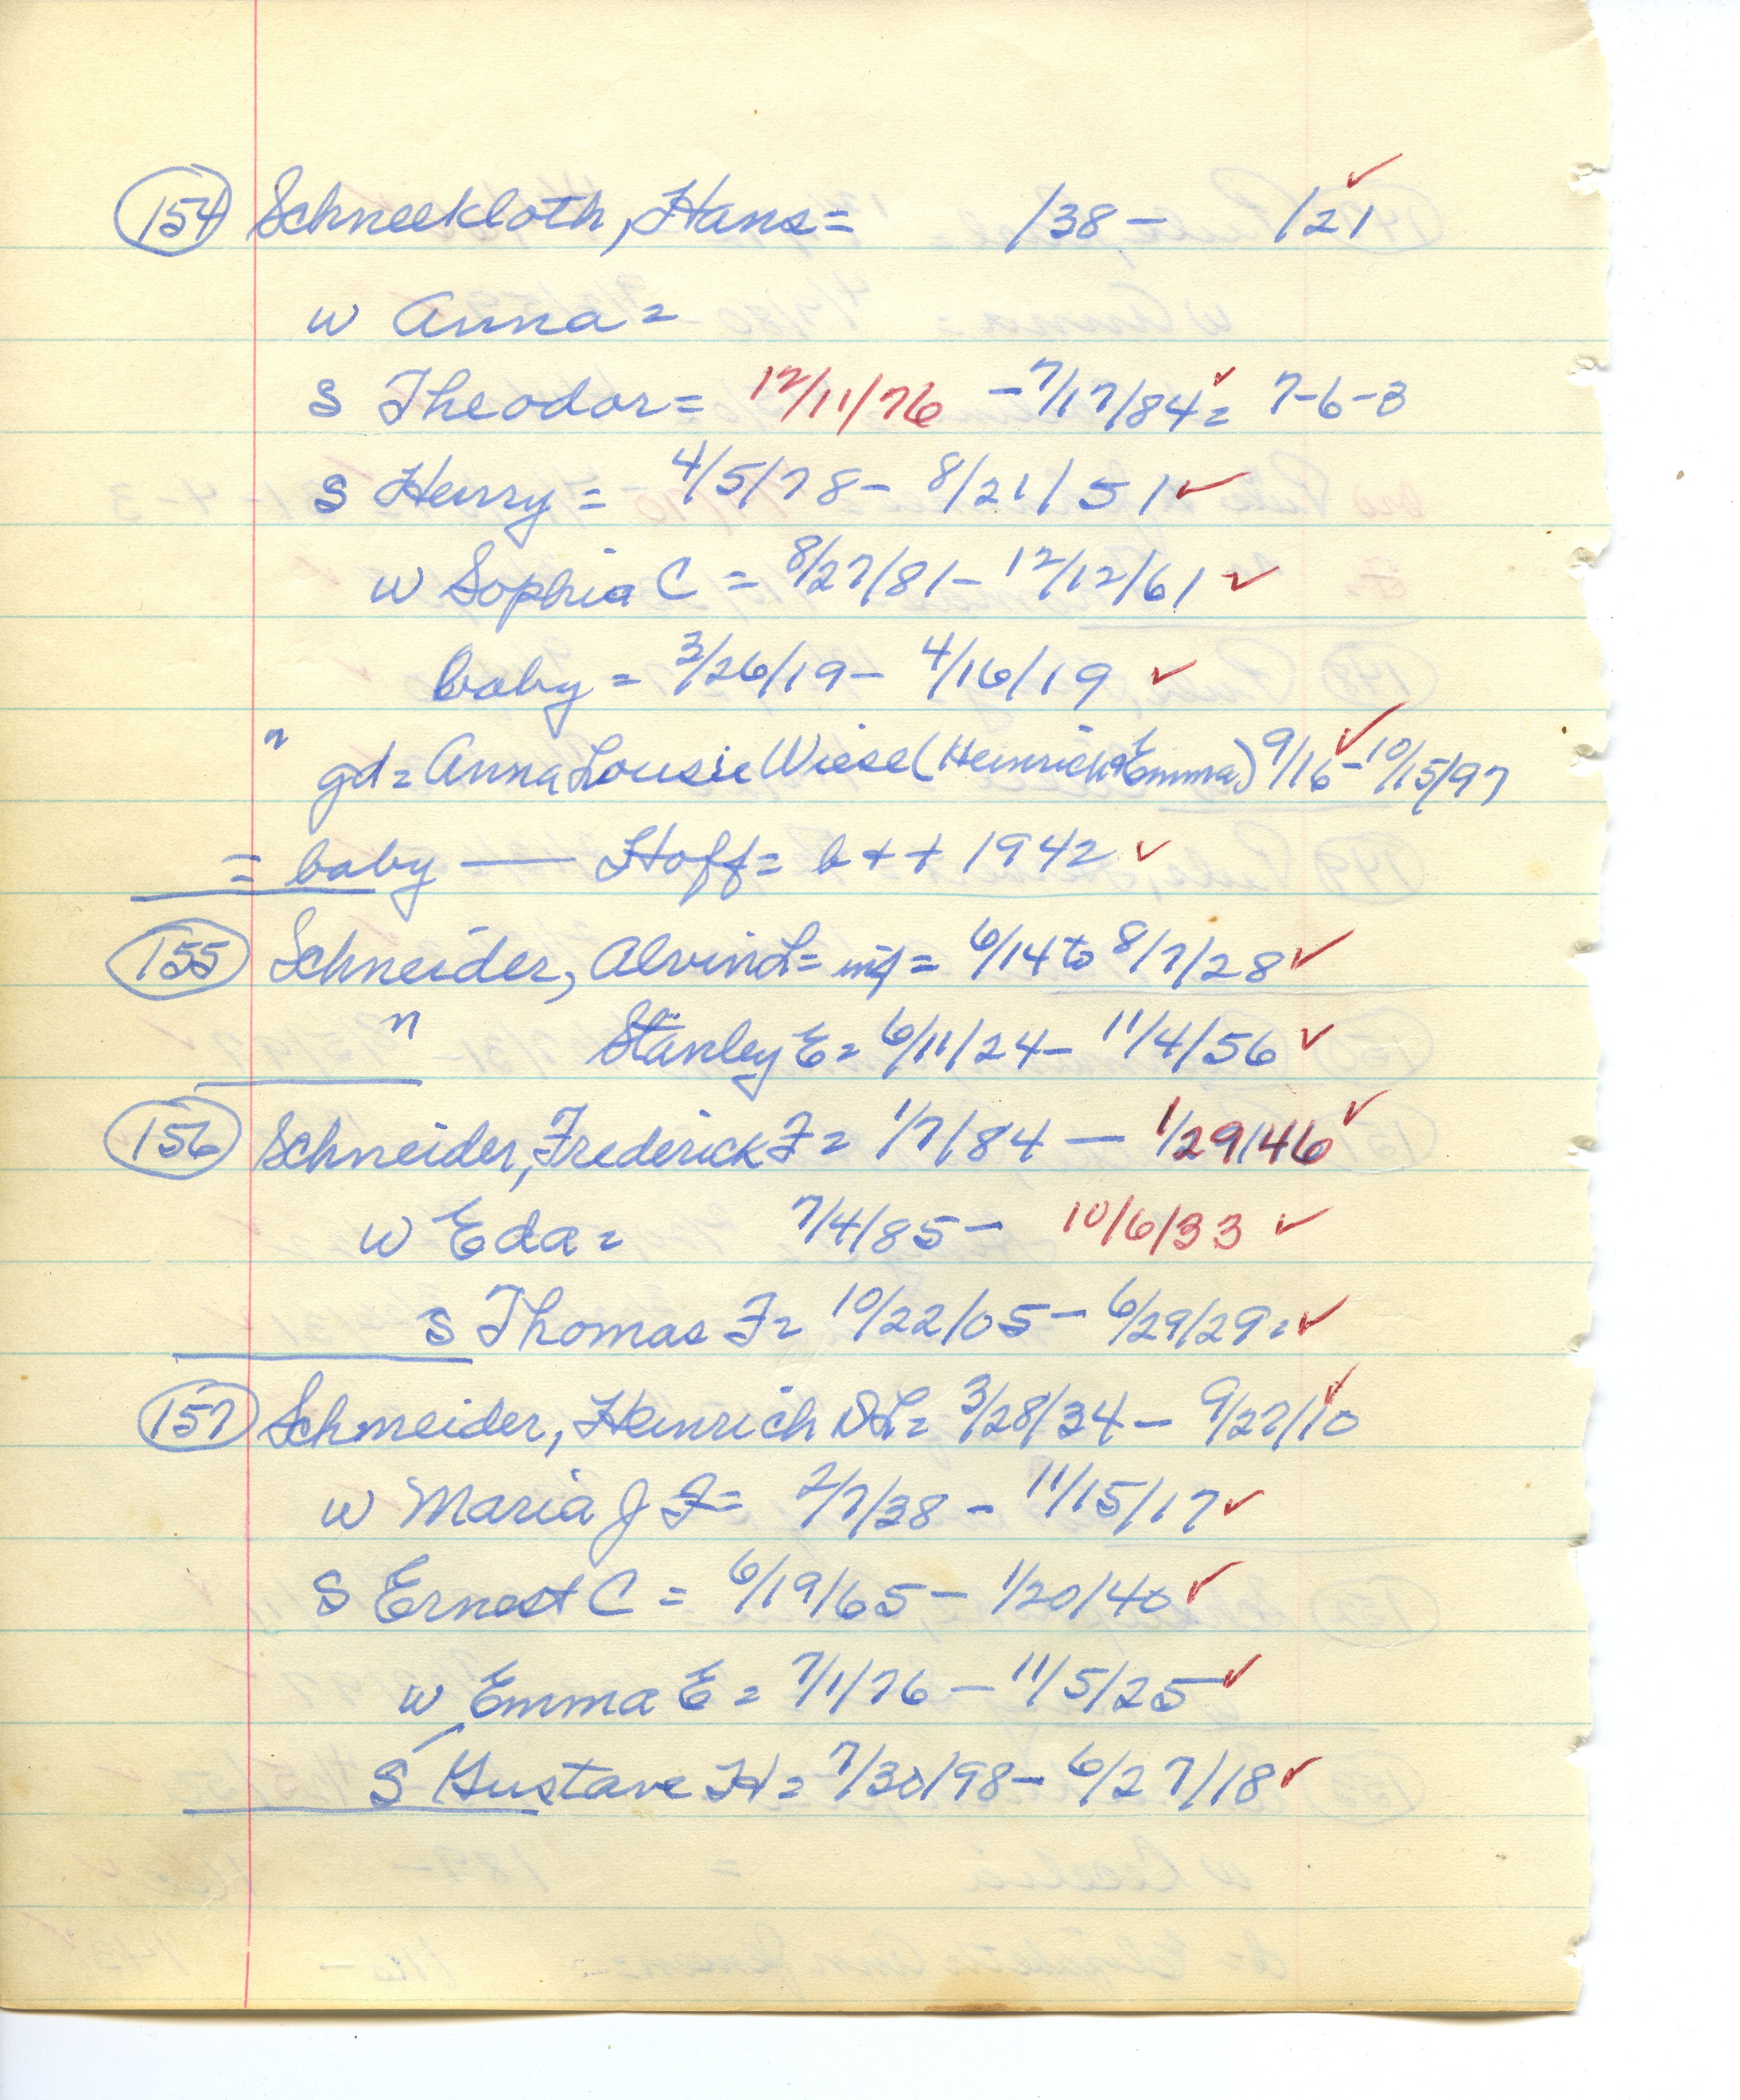 154 Schneekloth, Hans = /38 - /21 ✓
w Anna =
s Theodor = 12/11/76 - 7/17/84 ✓ = 7-6-3
s Henry = 4/5/78 - 8/21/51 ✓
w Sophia C = 8/27/81 - 12/12/61 ✓
baby = 3/26/19 - 4/16/19 ✓
" gd = Anna Lousie Wiese (Heinrich & Emma) 9/16 - 10/15/97 ✓
= baby — Hoff = b + + 1942 ✓
155 Schneider, Alvin L = inf = 6/14 to 8/7/28 ✓
" Stanley E = 6/11/24 - 11/4/56 ✓
156 Schneider, Frederick F = 1/7/84 — 1/29/46 ✓
w Eda = 7/4/85 - 10/6/33 ✓
s Thomas F = 10/22/05 - 6/29/29 = ✓
157 Schneider, Heinrich D L = 3/28/34 - 9/27/10 ✓
w Maria J F = 2/7/38 - 11/15/17 ✓
s Ernest C = 6/19/65 - 1/20/40 ✓
w Emma E = 7/1/76 - 11/5/25 ✓
s Gustave H = 7/30/98 - 6/27/18 ✓